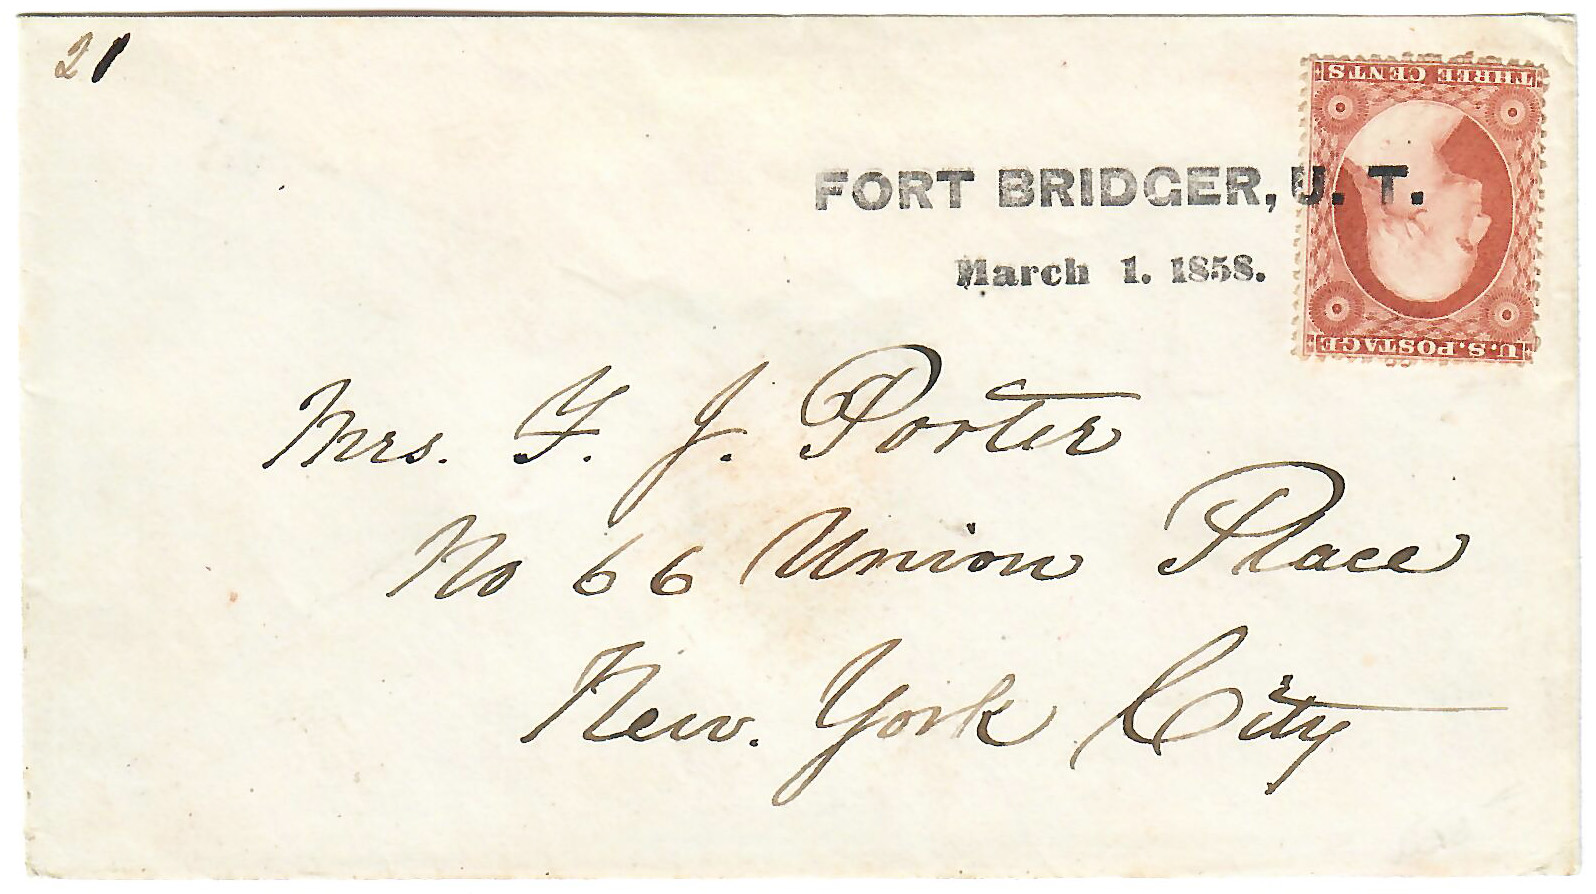 21
THREE CENTS
FORT BRIDGER, U. T.
March 1. 1858.
U.S. POSTAGE
Mrs. F. J. Porter
No 66 Union Place
New. York City